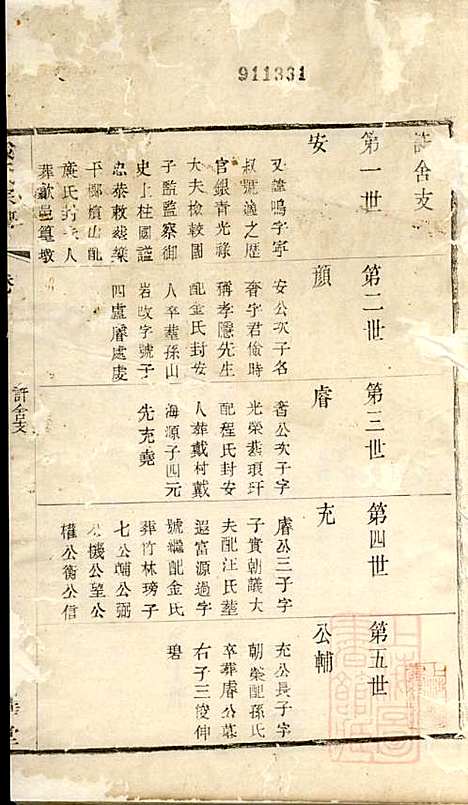 911331
許舍支
第一世
安
又諱鳴字寧
叔號逸之歷
官銀青光祿
大夫檢較國
子監監察御
史上柱國謚
忠
平鄉
氏
葬歙邑篁墩
第二世
顏
安公次子名
奢字君儉時
稱孝隱先生
配金氏封安
人卒葬孫山
岩改字號子
四盧睿處虔
第三世
睿
奢公次子字
光榮葬琅玕
配程氏封安
人葬戴村戴
海源子四元
先充堯
第四世
充
睿公三子字
子實朝議大
夫配汪氏葬
遐富源過字
號繼配金氏
葬竹林塝子
七公輔公弼
公機公望公
權公衡公信
第五世
公輔
充公長子字
朝榮配孫氏
卒葬睿公墓
右子三俊伸
碧
許舍支